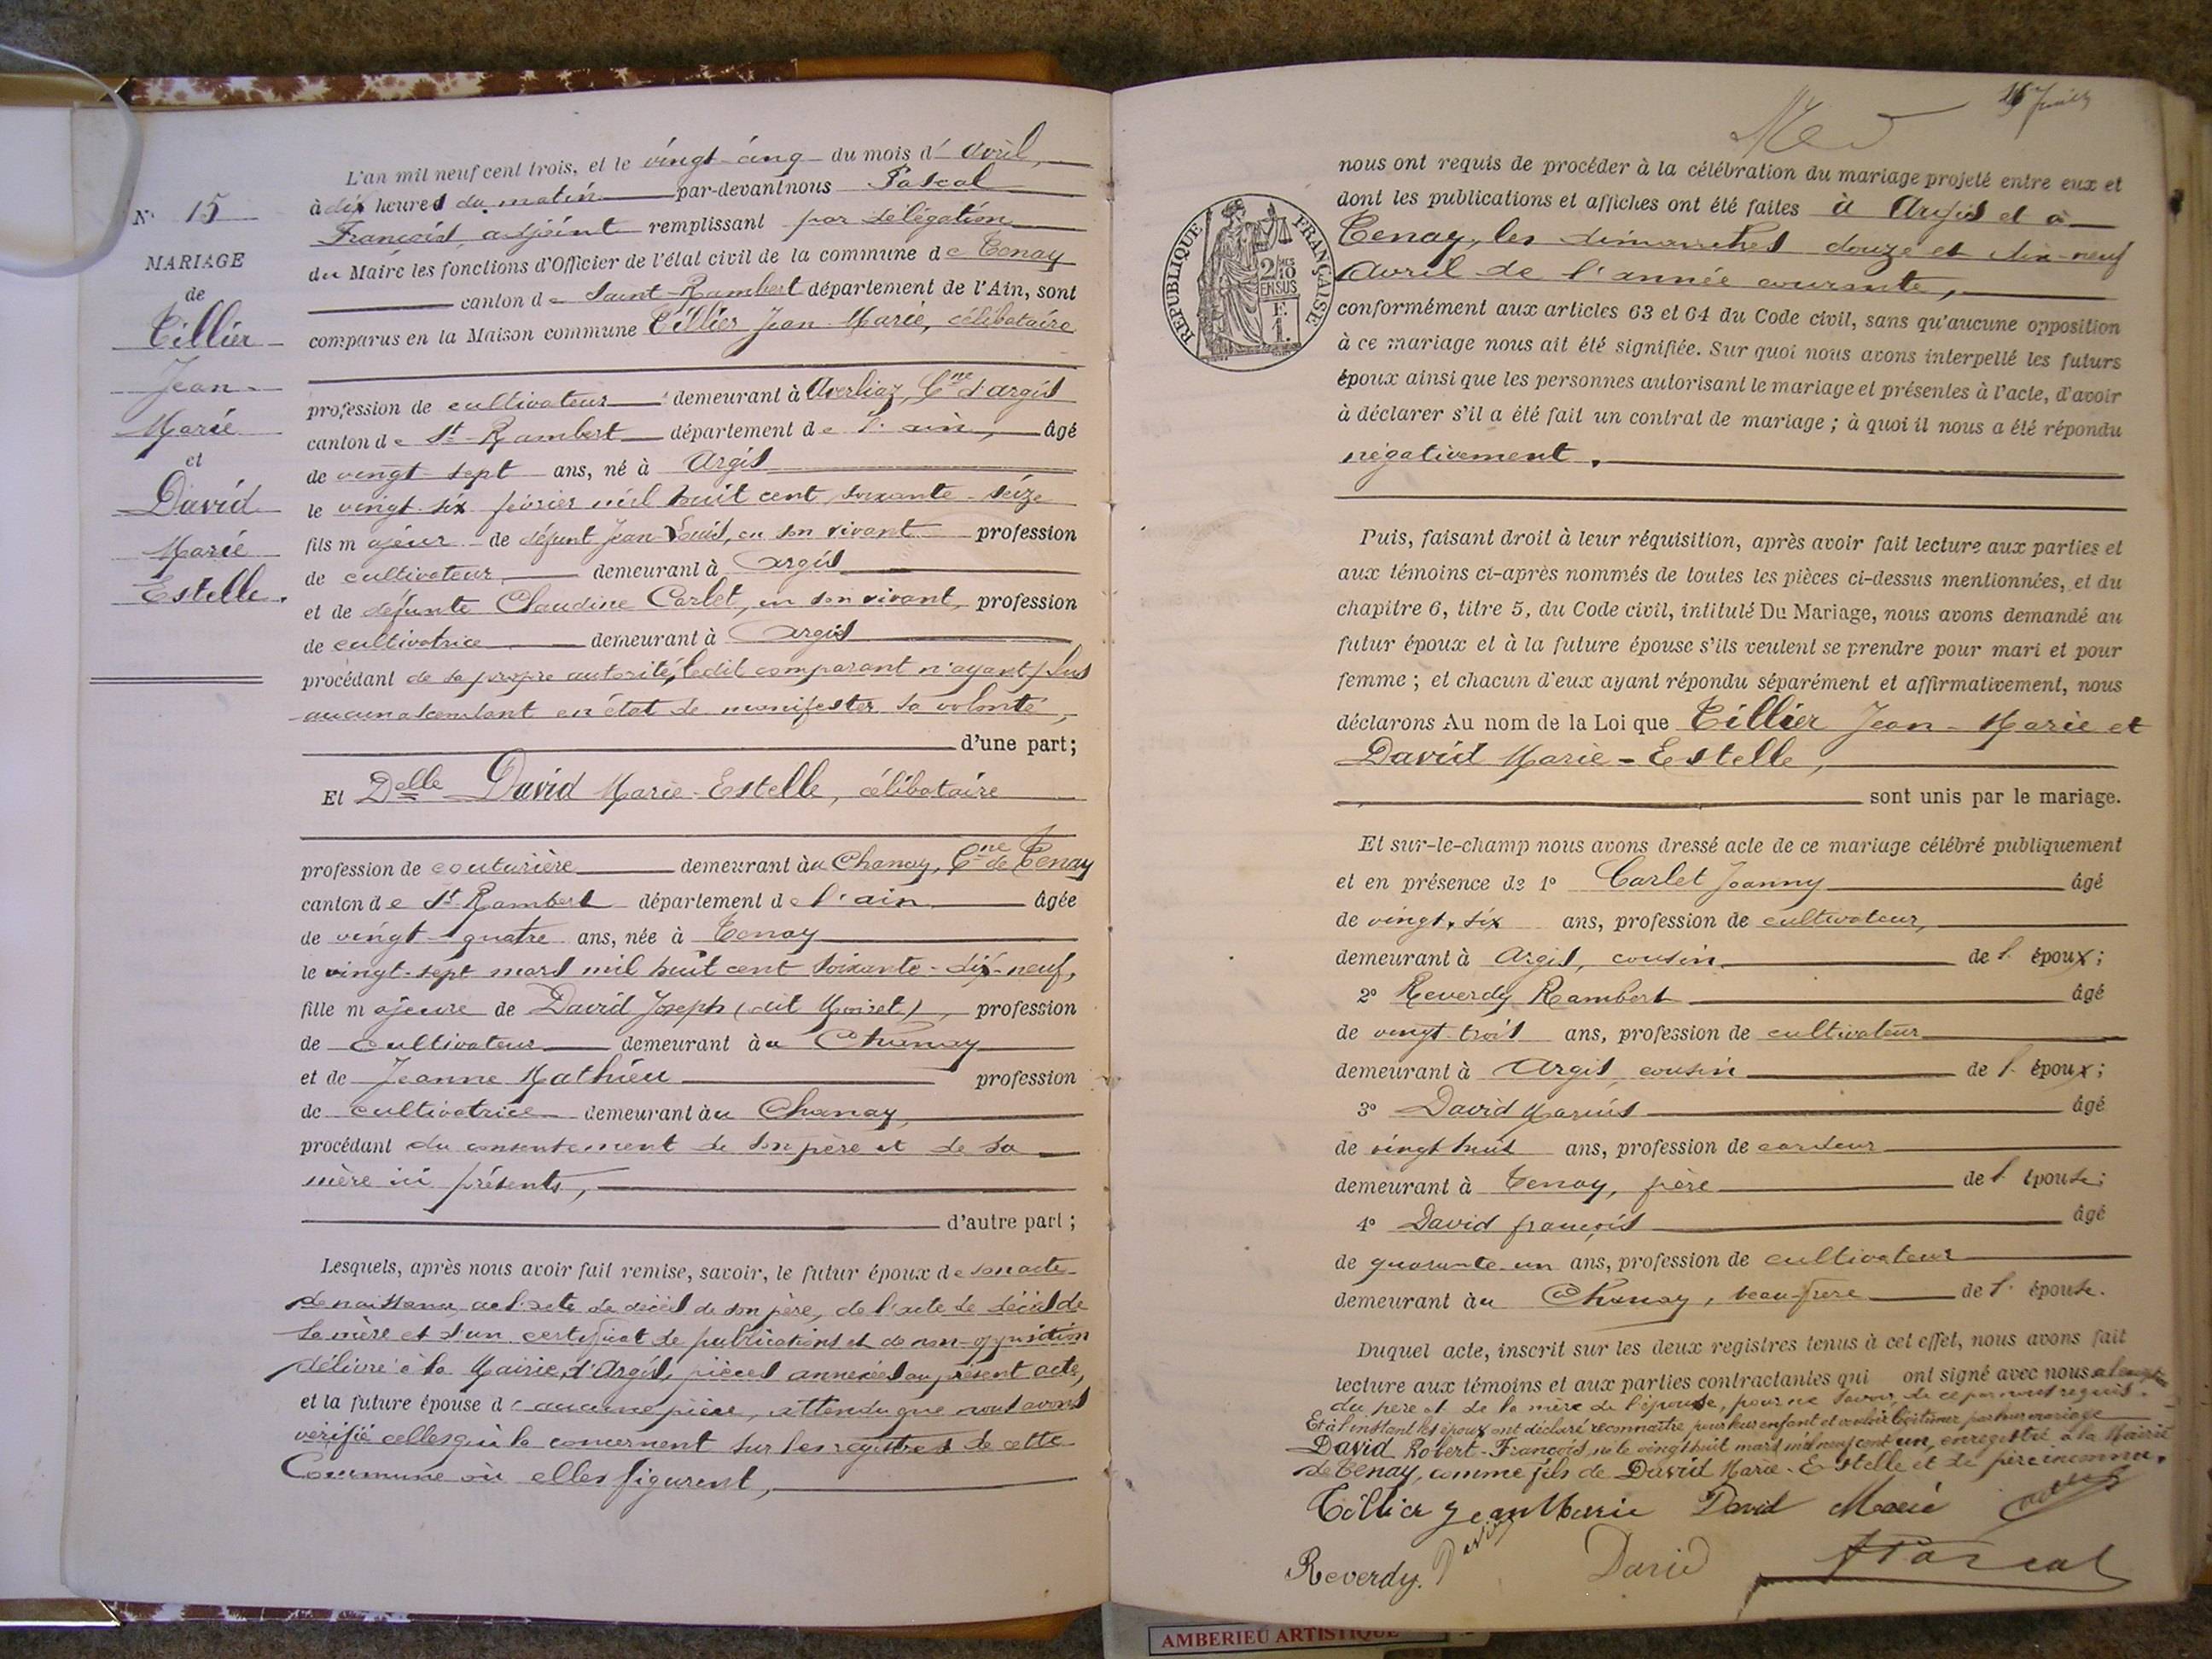 N° 15
MARIAGE
de
Tillier
Jean-
Marie
et
David
Marie
Estelle.
L'an mil neuf cent trois, et le vingt-cinq du mois d' Avril,
à dix heures du matin par-devant nous Pascal
François, adjoint remplissant par délégation
du Maire les fonctions d'Officier de l'état civil de la commune de Tenay
canton de Saint-Rambert département de l'Ain, sont
comparus en la Maison commune Tillier Jean-Marie, célibataire
profession de cultivateur demeurant à Averliaz, Cne d'argis
canton de St-Rambert département de l'ain, âgé
de vingt-sept ans, né à Argis
le vingt-six février mil huit cent soixante-seize
fils majeur de défunt Jean Louis, en son vivant profession
de cultivateur demeurant à Argis
et de défunte Claudine Carlet, en son vivant profession
de cultivatrice demeurant à Argis
procédant de sa propre autorité, ledit comparant n'ayant plus
aucun ascendant en état de manifester sa volonté,
d'une part;
Et Delle David Marie-Estelle, célibataire
profession de couturière demeurant àu Chanay, Cne de Tenay
canton de St Rambert département de l'ain âgée
de vingt-quatre ans, née à Tenay
le vingt-sept mars mil huit cent soixante-dix-neuf,
fille majeure de David Joseph (dit Moiret), profession
de cultivateur demeurant àu Chanay
et de Jeanne Mathieu profession
de cultivatrice demeurant àu Chanay,
procédant du consentement de son père et de sa
mère ici présents,
d'autre part;
Lesquels, après nous avoir fait remise, savoir, le futur époux de son acte
de naissance, de l'acte de décès de son père, de l'acte de décès de
sa mère et d'un certificat de publications et de non-opposition
délivré à la Mairie d'Argis, pièces annexées au présent acte,
et la future épouse d'aucune pièce, attendu que nous avons
vérifié celles qui la concernent sur les registres de cette
Commune où elles figurent,
nous ont requis de procéder à la célébration du mariage projeté entre eux et
dont les publications et affiches ont été faites à Argis et à
Tenay, les dimanches douze et dix-neuf
Avril de l'année courante,
RÉPUBLIQUE FRANÇAISE
2/10 EN SUS
F.
1.
conformément aux articles 63 et 64 du Code civil, sans qu'aucune opposition
à ce mariage nous ait été signifiée. Sur quoi nous avons interpellé les futurs
époux ainsi que les personnes autorisant le mariage et présentes à l'acte, d'avoir
à déclarer s'il a été fait un contrat de mariage ; à quoi il nous a été répondu
négativement.
Puis, faisant droit à leur réquisition, après avoir fait lecture aux parties et
aux témoins ci-après nommés de toutes les pièces ci-dessus mentionnées, et du
chapitre 6, titre 5, du Code civil, intitulé Du Mariage, nous avons demandé au
futur époux et à la future épouse s'ils veulent se prendre pour mari et pour
femme ; et chacun d'eux ayant répondu séparément et affirmativement, nous
déclarons Au nom de la Loi que Tillier Jean-Marie et
David Marie-Estelle,
sont unis par le mariage.
Et sur-le-champ nous avons dressé acte de ce mariage célébré publiquement
et en présence de 1° Carlet Joanny âgé
de vingt-six ans, profession de cultivateur,
demeurant à Argis, cousin de l'époux;
2° Reverdy Rambert âgé
de vingt-trois ans, profession de cultivateur
demeurant à Argis, cousin de l'époux;
3° David Marius âgé
de vingt huit ans, profession de cardeur
demeurant à Tenay, frère de l'épouse;
4° David françois âgé
de quarante-un ans, profession de cultivateur
demeurant àu Chanay, beau-frère de l'épouse.
Duquel acte, inscrit sur les deux registres tenus à cet effet, nous avons fait
lecture aux témoins et aux parties contractantes qui ont signé avec nous
du père et de la mère de l'épouse, pour ne savoir, de ce par nous requis.
Et à l'instant les époux ont déclaré reconnaître pour leur enfant et vouloir légitimer par leur mariage
David Robert-François, né le vingt huit mars mil neuf cent un, enregistré à la Mairie
de Tenay, comme fils de David Marie-Estelle et de père inconnu.
Tillier Jean Marie David Marie Carlet
Reverdy. David David FPascal
AMBERIEU ARTISTIQUE